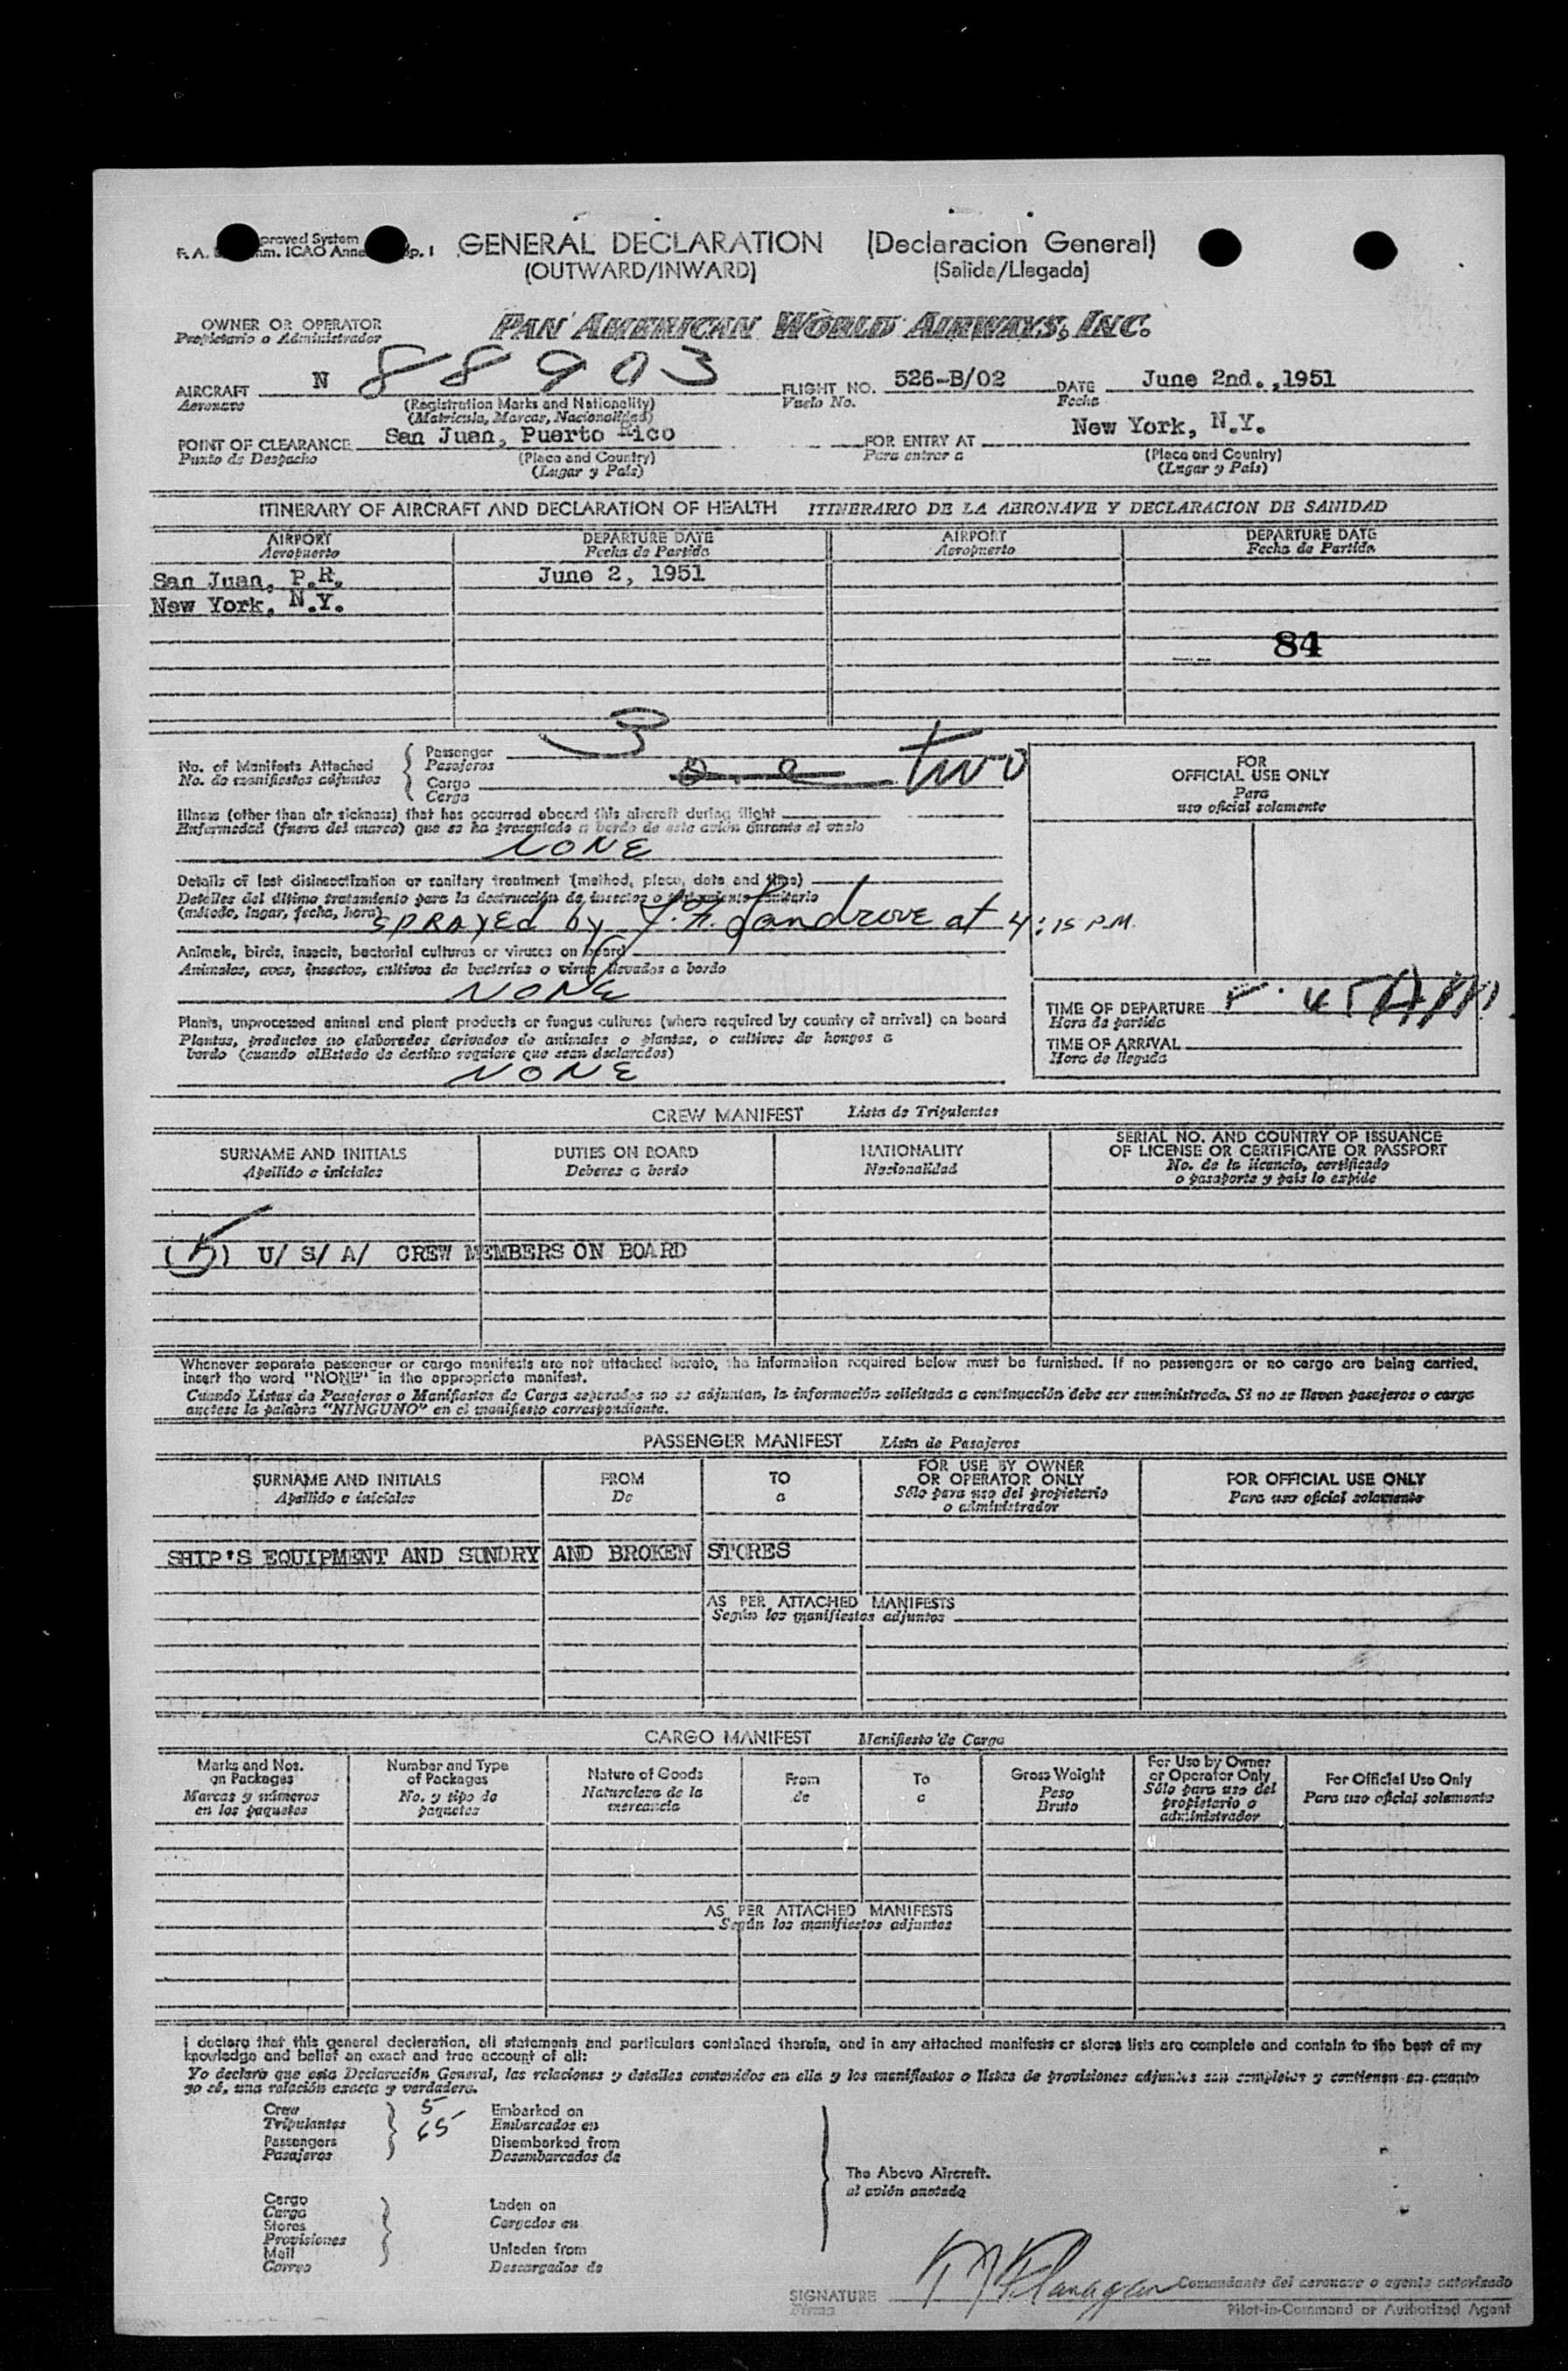 proved System GENERAL DECLARATION (Declaracion General)
F. A. nm. ICAO Anne p. 1 (OUTWARD/INWARD) (Salida/Llegada)
OWNER OR OPERATOR PAN AMERICAN WORLD AIRWAYS, INC.
Propietario o Administrador
AIRCRAFT N 88903 FLIGHT NO. 526-B/02 DATE June 2nd.,1951
Aeronave (Registration Marks and Nationality) Vuelo No. Fecha
(Matricula, Marcas, Nacionalidad)
POINT OF CLEARANCE San Juan, Puerto Rico FOR ENTRY AT New York, N.Y.
Punto de Despacho (Place and Country) Para entrar a (Place and Country)
(Lugar y País) (Lugar y País)
ITINERARY OF AIRCRAFT AND DECLARATION OF HEALTH ITINERARIO DE LA AERONAVE Y DECLARACION DE SANIDAD
AIRPORT DEPARTURE DATE AIRPORT DEPARTURE DATE
Aeropuerto Fecha de Partida Aeropuerto Fecha de Partida
San Juan, P.R. June 2, 1951
New York, N.Y.
84
No. of Manifests Attached Passenger 3
No. de manifiestos adjuntos Pasajeros
Cargo two
Carga
FOR
OFFICIAL USE ONLY
Para
uso oficial solamente
Illness (other than air sickness) that has occurred aboard this aircraft during flight
Enfermedad (fuera del mareo) que se ha presentado a bordo de este avión durante el vuelo
NONE
Details of last disinsectization or sanitary treatment (method, place, date and time)
Detalles del último tratamiento para la destrucción de insectos o tratamiento sanitario
(método, lugar, fecha, hora)
SPRAYED by at 4:15 P.M.
Animals, birds, insects, bacterial cultures or viruses on board
Animales, aves, insectos, cultivos de bacterias o virus llevados a bordo
NONE
Plants, unprocessed animal and plant products or fungus cultures (where required by country of arrival) on board
Plantas, productos no elaborados derivados de animales o plantas, o cultivos de hongos a
bordo (cuando elEstado de destino requiere que sean declarados)
NONE
TIME OF DEPARTURE
Hora de partida
TIME OF ARRIVAL
Hora de llegada
CREW MANIFEST Lista de Tripulantes
SURNAME AND INITIALS DUTIES ON BOARD NATIONALITY SERIAL NO. AND COUNTRY OF ISSUANCE
OF LICENSE OR CERTIFICATE OR PASSPORT
Apellido e iniciales Deberes a bordo Nacionalidad No. de la licencia, certificado
o pasaporte y país lo expide
(5) U/ S/ A/ CREW MEMBERS ON BOARD
Whenever separate passenger or cargo manifests are not attached hereto, the information required below must be furnished. If no passengers or no cargo are being carried,
insert the word "NONE" in the appropriate manifest.
Cuando Listas de Pasajeros o Manifiestos de Carga separados no se adjuntan, la información solicitada a continuación debe ser suministrada. Si no se lleven pasajeros o carga
anótese la palabra "NINGUNO" en el manifiesto correspondiente.
PASSENGER MANIFEST Lista de Pasajeros
SURNAME AND INITIALS FROM TO FOR USE BY OWNER
OR OPERATOR ONLY FOR OFFICIAL USE ONLY
Apellido e iniciales De a Sólo para uso del propietario
o administrador Para uso oficial solamente
SHIP'S EQUIPMENT AND SUNDRY AND BROKEN STORES
AS PER ATTACHED MANIFESTS
Según los manifiestos adjuntos
CARGO MANIFEST Manifiesto de Carga
Marks and Nos.
on Packages
Marcas y números
en los paquetes
Number and Type
of Packages
No. y tipo de
paquetes
Nature of Goods
Naturaleza de la
mercancía
From
de
To
a
Gross Weight
Peso
Bruto
For Use by Owner
or Operator Only
Sólo para uso del
propietario o
administrador
For Official Use Only
Para uso oficial solamente
AS PER ATTACHED MANIFESTS
Según los manifiestos adjuntos
I declare that this general declaration, all statements and particulars contained therein, and in any attached manifests or stores lists are complete and contain to the best of my
knowledge and belief an exact and true account of all:
Yo declaro que esta Declaración General, las relaciones y detalles contenidos en ella y los manifiestos o listas de provisiones adjuntos son completos y contienen en cuanto
yo sé, una relación exacta y verdadera.
Crew 5 Embarked on
Tripulantes 65 Embarcados en
Passengers Disembarked from
Pasajeros Desembarcados de
The Above Aircraft.
al avión anotado
Cargo
Carga Laden on
Stores Cargados en
Provisiones
Mail Unladen from
Correo Descargados de
SIGNATURE Flanagan Comandante del aeronave o agente autorizado
Firma Pilot-in-Command or Authorized Agent